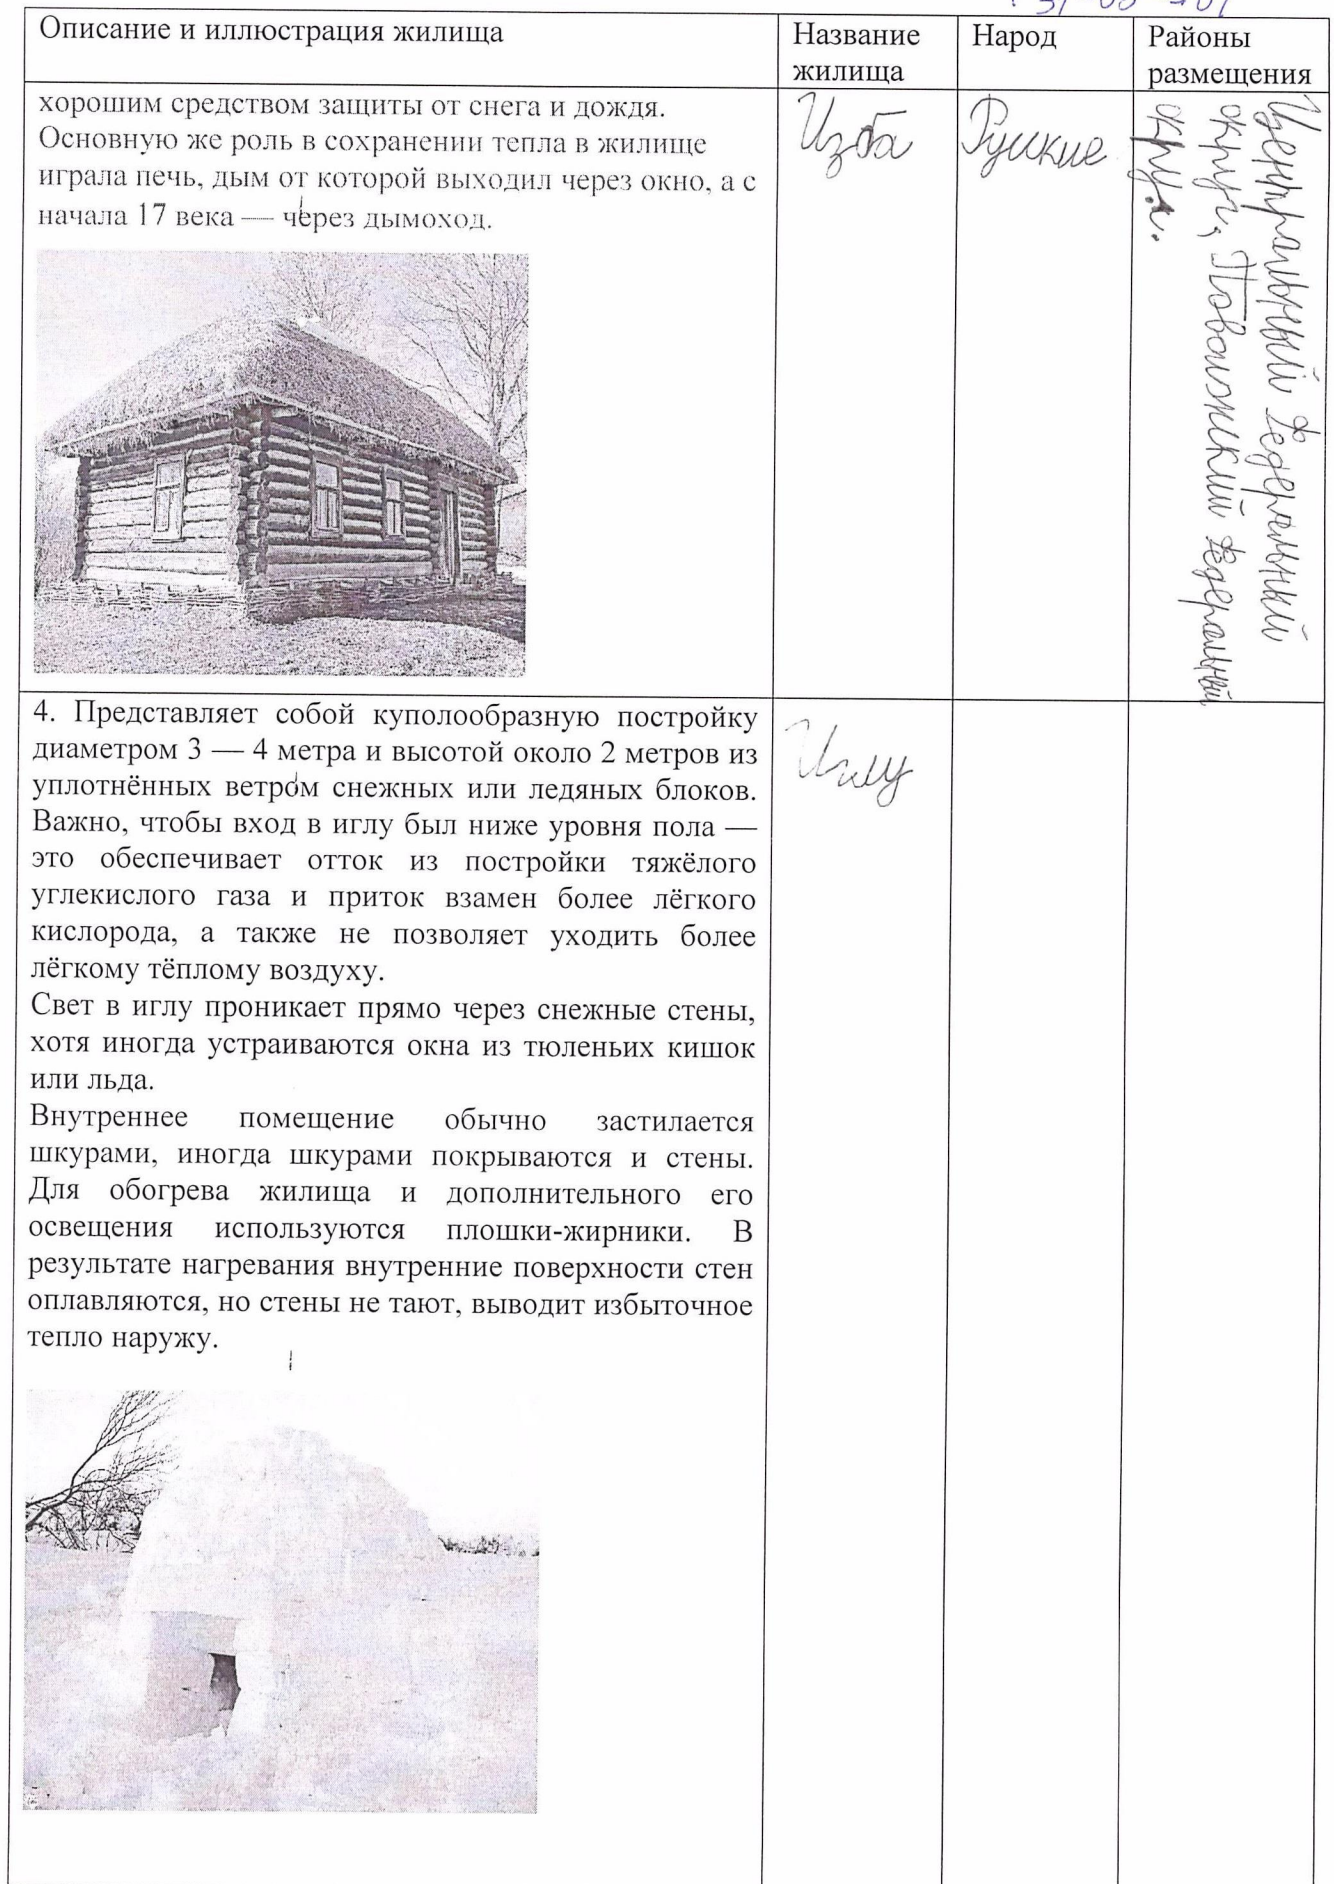 Описание и иллюстрация жилища
Название
жилища
Народ
Районы
размещения
хорошим средством защиты от снега и дождя.
Основную же роль в сохранении тепла в жилище
играла печь, дым от которой выходил через окно, а с
начала 17 века — через дымоход.
Изба
Русские
Центральный федеральный
округ, Поволжский федеральный
округ.
4. Представляет собой куполообразную постройку
диаметром 3 — 4 метра и высотой около 2 метров из
уплотнённых ветром снежных или ледяных блоков.
Важно, чтобы вход в иглу был ниже уровня пола —
это обеспечивает отток из постройки тяжёлого
углекислого газа и приток взамен более лёгкого
кислорода, а также не позволяет уходить более
лёгкому тёплому воздуху.
Свет в иглу проникает прямо через снежные стены,
хотя иногда устраиваются окна из тюленьих кишок
или льда.
Внутреннее помещение обычно застилается
шкурами, иногда шкурами покрываются и стены.
Для обогрева жилища и дополнительного его
освещения используются плошки-жирники. В
результате нагревания внутренние поверхности стен
оплавляются, но стены не тают, выводит избыточное
тепло наружу.
Иглу